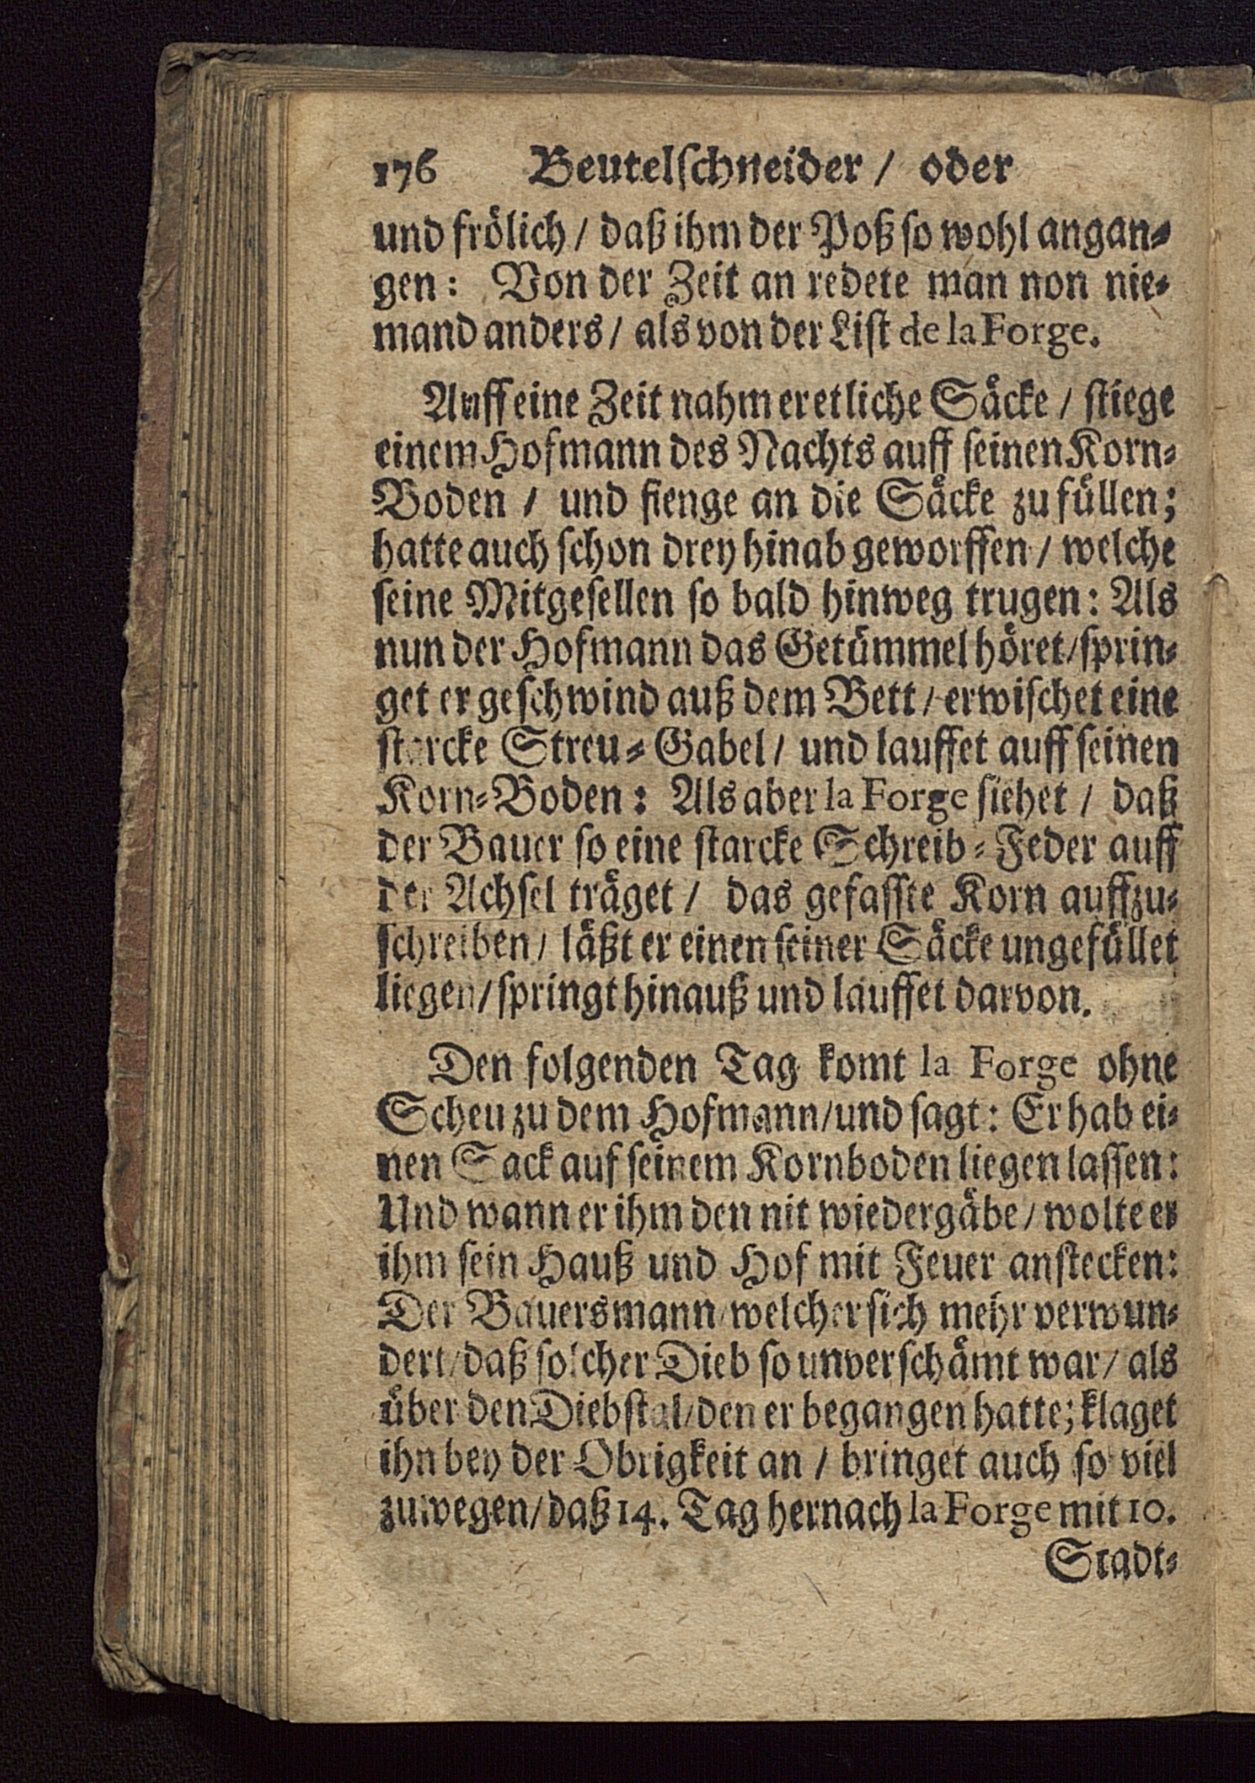 176 Beutelschneider / oder
und frölich / daß ihm der Poß so wohl angan-
gen: Von der Zeit an redete man non nie-
mand anders / als von der List de la Forge.
Auff eine Zeit nahm er etliche Säcke / stiege
einem Hofmann des Nachts auff seinen Korn-
Boden / und fienge an die Säcke zu füllen;
hatte auch schon drey hinab geworffen / welche
seine Mitgesellen so bald hinweg trugen: Als
nun der Hofmann das Getümmel höret / sprin-
get er geschwind auß dem Bett / erwischet eine
starcke Streu-Gabel / und lauffet auff seinen
Korn-Boden: Als aber la Forge siehet / daß
der Bauer so eine starcke Schreib-Feder auff
der Achsel träget / das gefasste Korn auffzu-
schreiben / läßt er einen seiner Säcke ungefüllet
liegen / springt hinauß und lauffet darvon.
Den folgenden Tag komt la Forge ohne
Scheu zu dem Hofmann / und sagt: Er hab ei-
nen Sack auf seinem Kornboden liegen lassen:
Und wann er ihm den nit wiedergäbe / wolte er
ihm sein Hauß und Hof mit Feuer anstecken:
Der Bauersmann welcher sich mehr verwun-
dert / daß solcher Dieb so unverschämt war / als
über den Diebstal / den er begangen hatte; klaget
ihn bey der Obrigkeit an / bringet auch so viel
zuwegen / daß 14. Tag hernach la Forge mit 10.
Stadt-